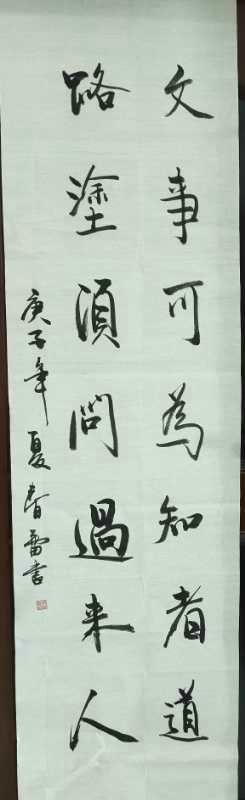 文事可為知者道
路塗須問過来人
庚子年夏春雷书